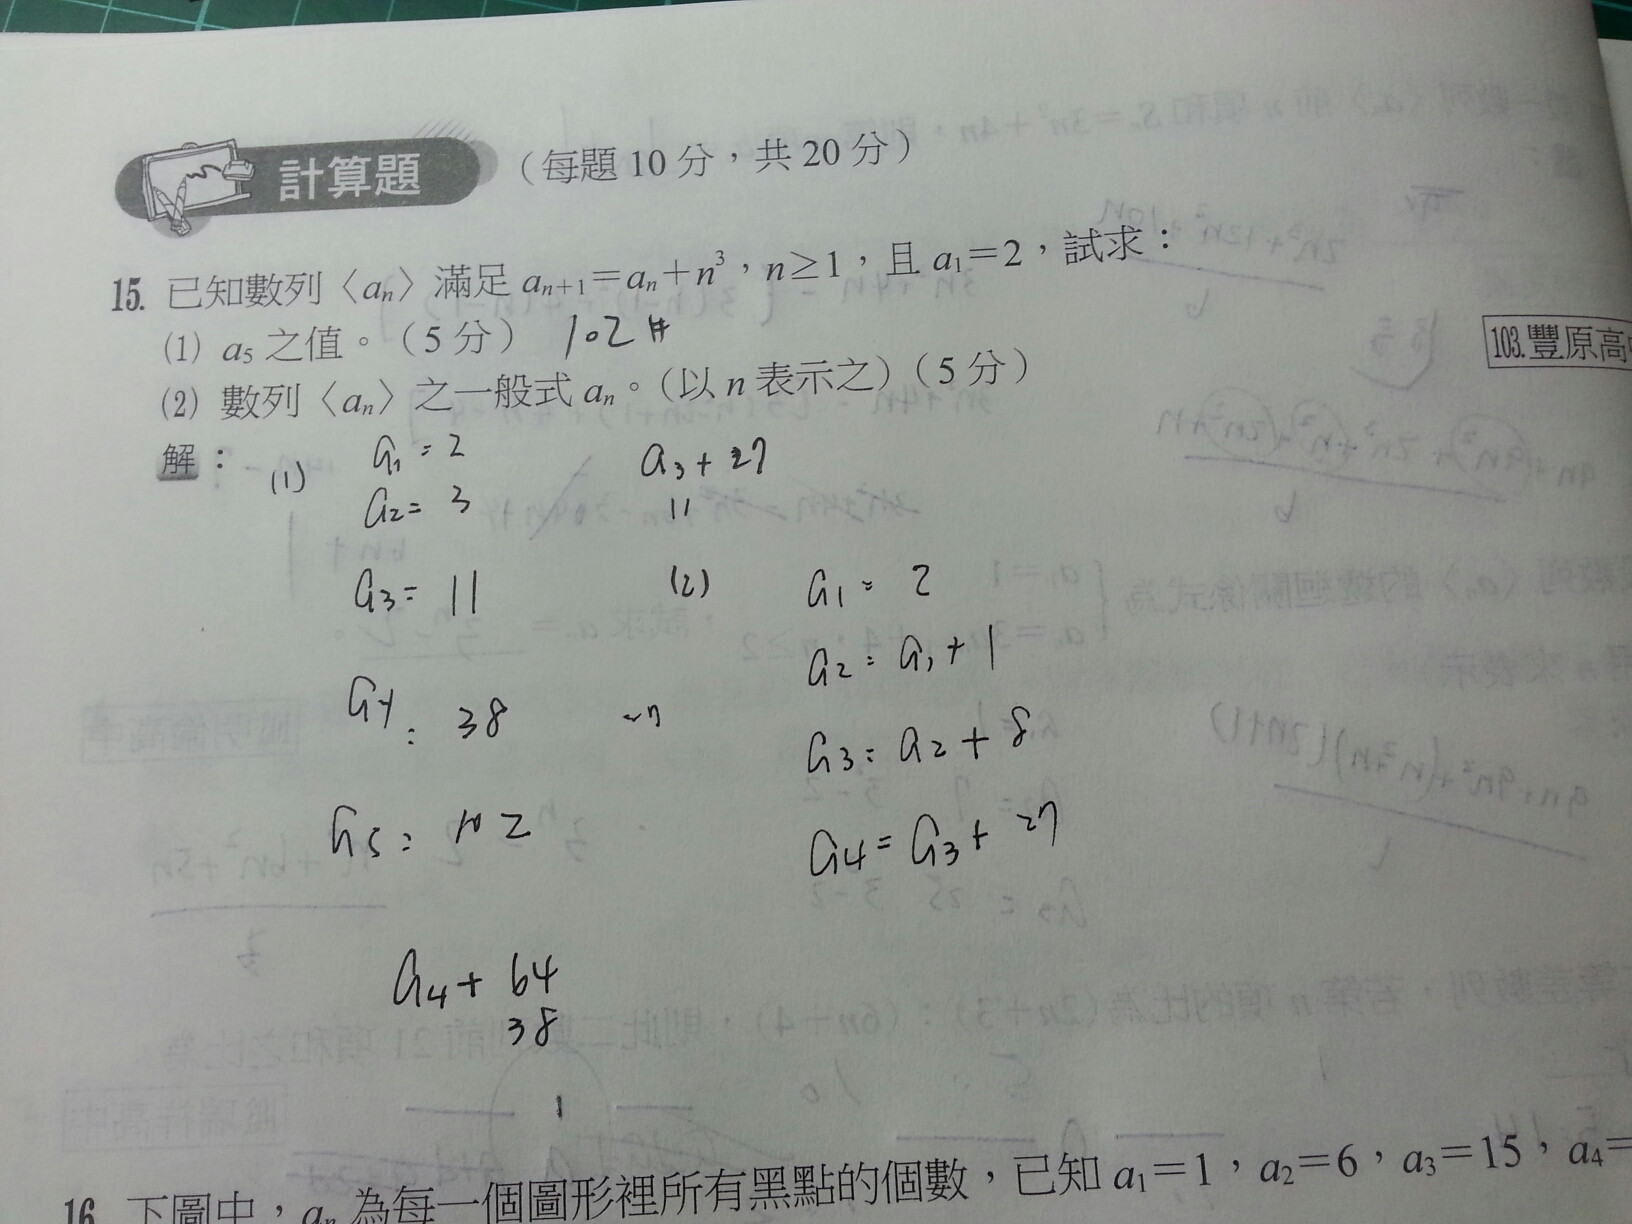 計算題 (每題10分,共20分)
15. 已知數列〈aₙ〉滿足 aₙ₊₁=aₙ+n³,n≥1,且 a₁=2,試求:
(1) a₅ 之值。(5分) 102 #
103.豐原高
(2) 數列〈aₙ〉之一般式 aₙ。(以 n 表示之)(5分)
解:
(1) a₁=2
a₂=3
a₃=11
a₄=38
a₅=102
a₄+64
38
a₃+27
11
(2) a₁=2
a₂=a₁+1
a₃=a₂+8
a₄=a₃+27
16. 下圖中,aₙ 為每一個圖形裡所有黑點的個數,已知 a₁=1,a₂=6,a₃=15,a₄=